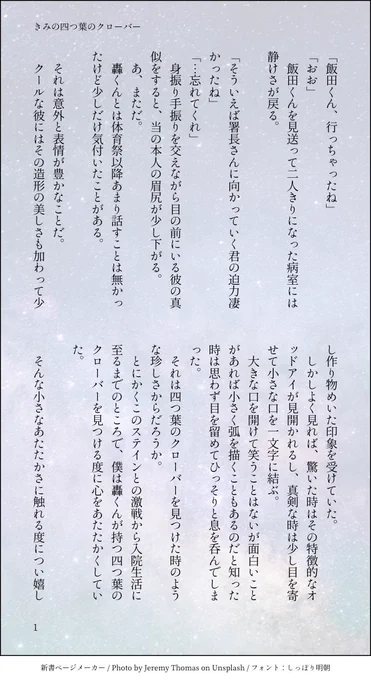 きみの四つ葉のクローバー
「飯田くん、行っちゃったね」
「おお」
飯田くんを見送って二人きりになった病室には
静けさが戻る。
「そういえば署長さんに向かっていく君の迫力凄
かったね」
「…忘れてくれ」
身振り手振りを交えながら目の前にいる彼の真
似をすると、当の本人の眉尻が少し下がる。
あ、まただ。
轟くんとは体育祭以降あまり話すことは無かっ
たけど少しだけ気付いたことがある。
それは意外と表情が豊かなことだ。
クールな彼にはその造形の美しさも加わって少
し作り物めいた印象を受けていた。
しかしよく見れば、驚いた時はその特徴的なオ
ッドアイが見開かれるし、真剣な時は少し目を寄
せて小さな口を一文字に結ぶ。
大きな口を開けて笑うことはないが面白いこと
があれば小さく弧を描くこともあるのだと知った
時は思わず目を留めてひっそりと息を呑んでしま
った。
それは四つ葉のクローバーを見つけた時のよう
な珍しさからだろうか。
とにかくこのステインとの激戦から入院生活に
至るまでのところで、僕は轟くんが持つ四つ葉の
クローバーを見つける度に心をあたたかくしてい
た。
そんな小さなあたたかさに触れる度につい嬉し
1
新書ページメーカー / Photo by Jeremy Thomas on Unsplash / フォント：しっぽり明朝